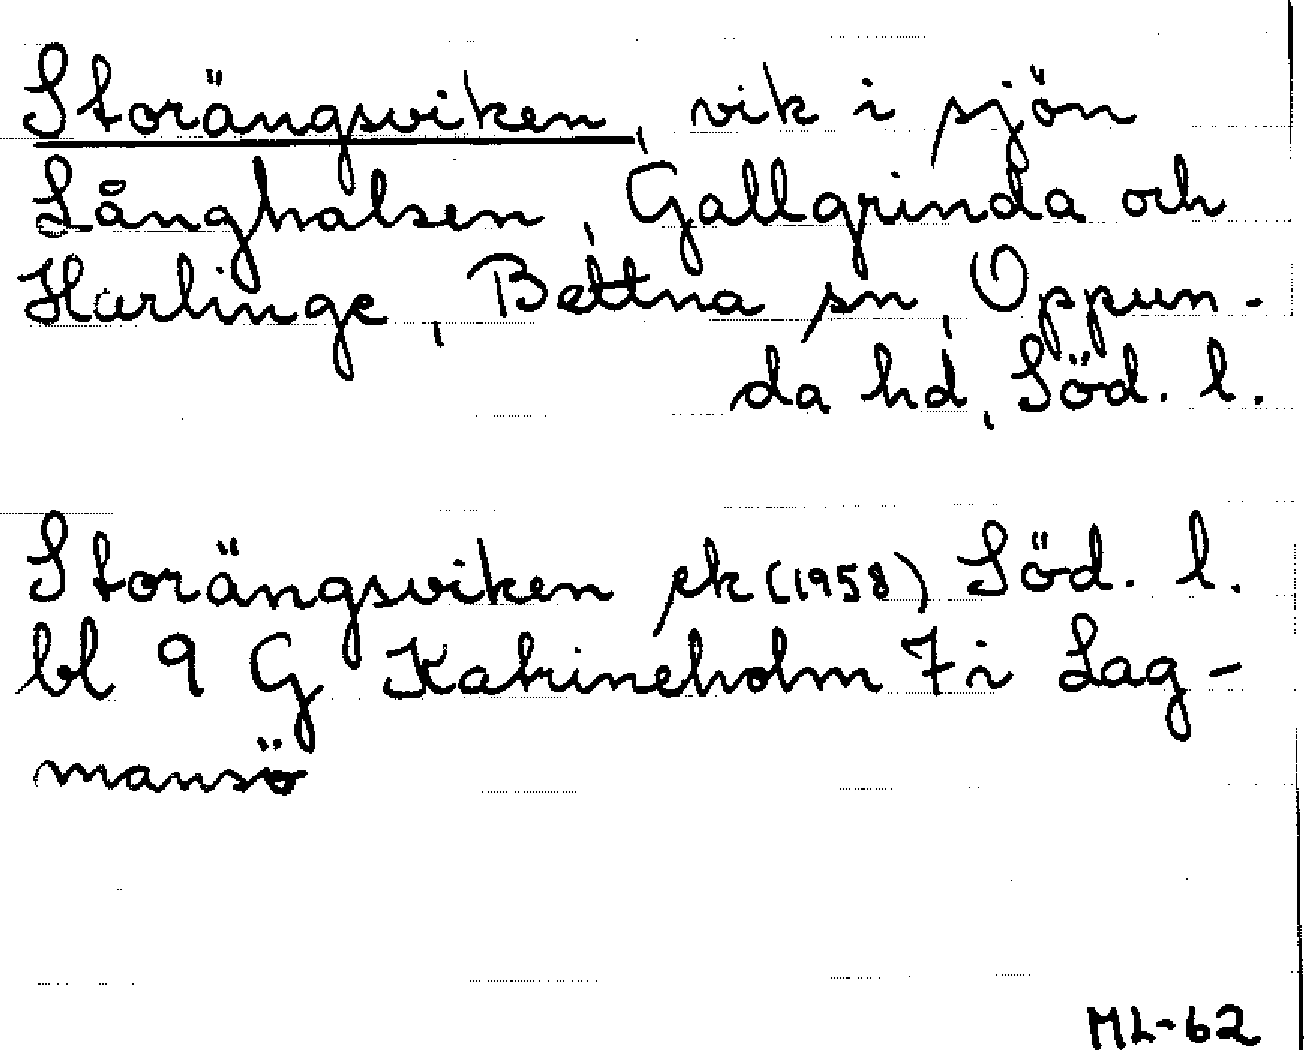 Storängsviken, vik i sjön
Långhalsen, Gallgrinda och
Harlinge, Bettna sn, Oppun-
da hd, Söd. l.
Storängsviken ek (1958) Söd. l.
bl 9 G Katrineholm 7 i Lag-
mansö
ML-62